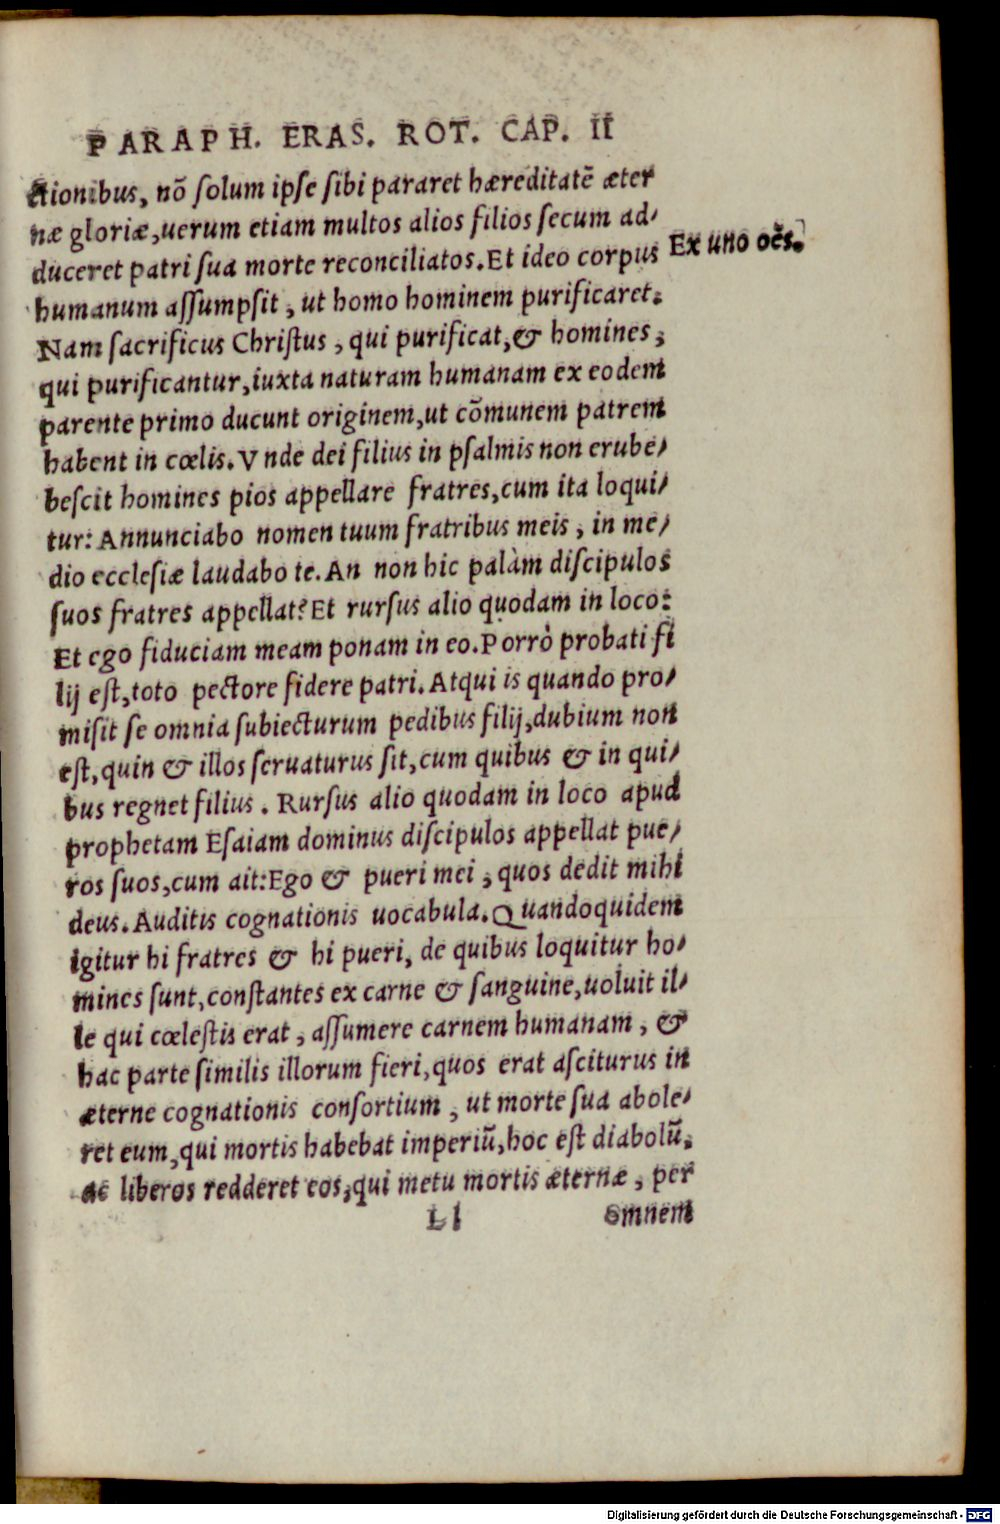 PARAPH. ERAS. ROT. CAP. II
ctionibus, nõ ſolum ipſe ſibi pararet hæreditatẽ æter
næ gloriæ,uerum etiam multos alios filios ſecum ad/
duceret patri ſua morte reconciliatos.Et ideo corpus
Ex uno oẽs.
humanum aſſumpſit, ut homo hominem purificaret.
Nam ſacrificus Chriſtus, qui purificat,& homines,
qui purificantur,iuxta naturam humanam ex eodem
parente primo ducunt originem,ut cõmunem patrem
habent in cœlis.Vnde dei filius in pſalmis non erube/
beſcit homines pios appellare fratres,cum ita loqui/
tur: Annunciabo nomen tuum fratribus meis, in me/
dio eccleſiæ laudabo te.An non hic palàm diſcipulos
ſuos fratres appellat? Et rurſus alio quodam in loco:
Et ego fiduciam meam ponam in eo.Porrò probati fi
lij eſt,toto pectore fidere patri.Atqui is quando pro/
miſit ſe omnia ſubiecturum pedibus filij,dubium non
eſt,quin & illos ſeruaturus ſit,cum quibus & in qui/
bus regnet filius. Rurſus alio quodam in loco apud
prophetam Eſaiam dominus diſcipulos appellat pue/
ros ſuos,cum ait:Ego & pueri mei, quos dedit mihi
deus.Auditis cognationis uocabula.Quandoquidem
igitur hi fratres & hi pueri, de quibus loquitur ho/
mines ſunt,conſtantes ex carne & ſanguine,uoluit il/
le qui cœleſtis erat, aſſumere carnem humanam, &
hac parte ſimilis illorum fieri,quos erat aſciturus in
æterne cognationis conſortium, ut morte ſua abole/
ret eum,qui mortis habebat imperiũ,hoc eſt diabolũ,
ac liberos redderet eos,qui metu mortis æternæ, per
Ll omnem
Digitalisierung gefördert durch die Deutsche Forschungsgemeinschaft - DFG